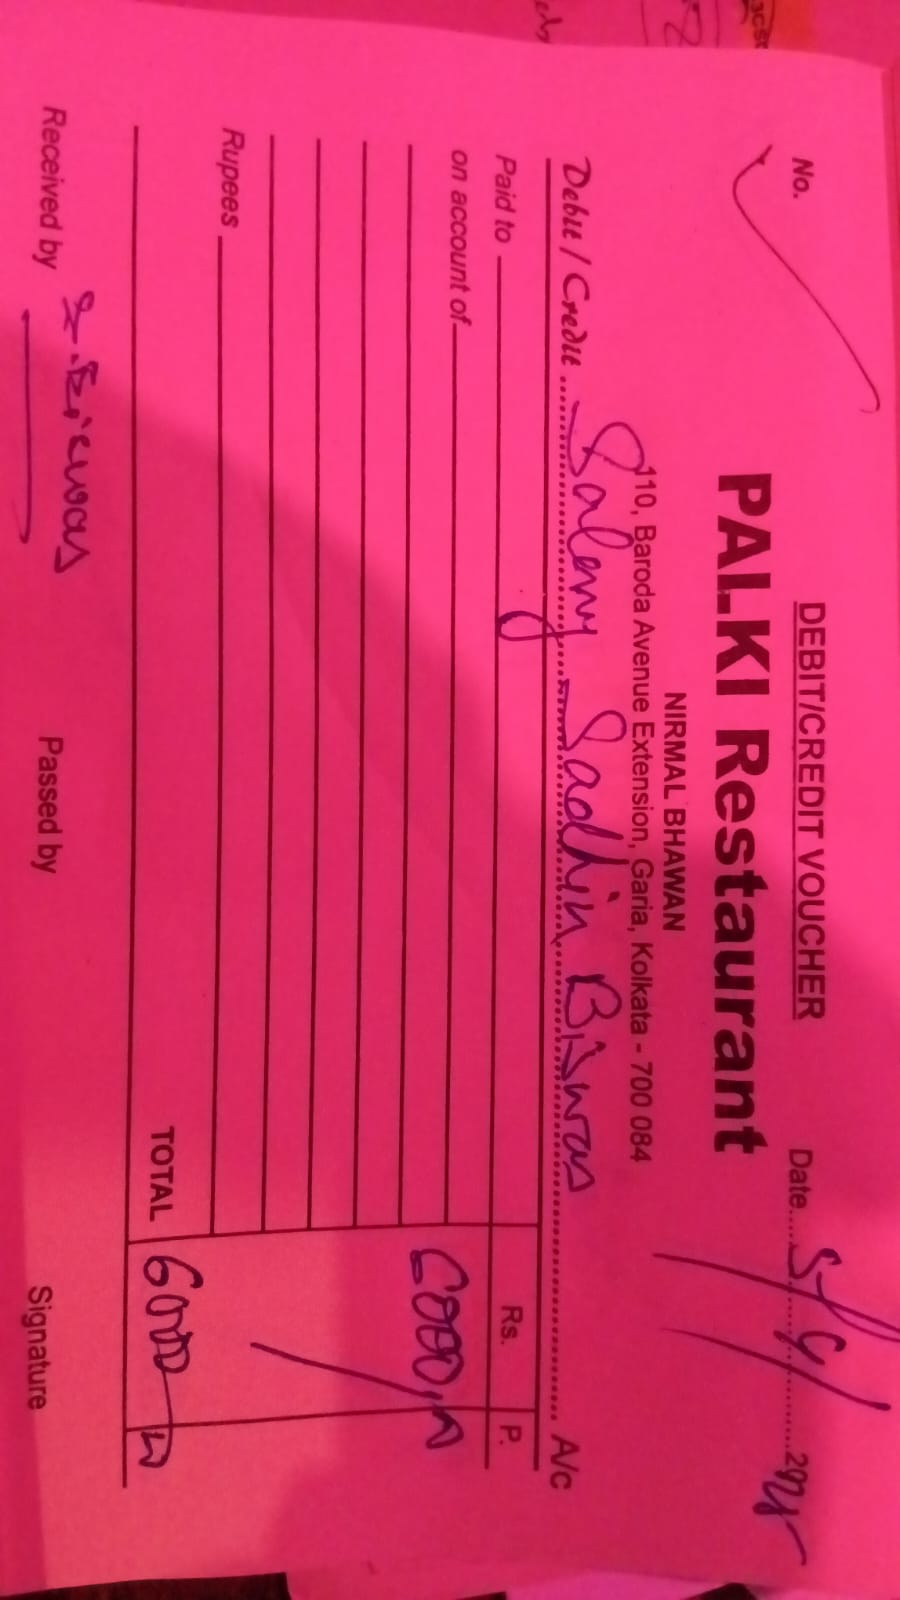 DEBIT/CREDIT VOUCHER
No. Date 5/9/
PALKI Restaurant
NIRMAL BHAWAN
110, Baroda Avenue Extension, Garia, Kolkata - 700 084
Debit / Credit Salary Sadhin Biswas A/c
Paid to Rs. P.
on account of 6000/-
Rupees
TOTAL 6000
Received by S. Biswas Passed by Signature